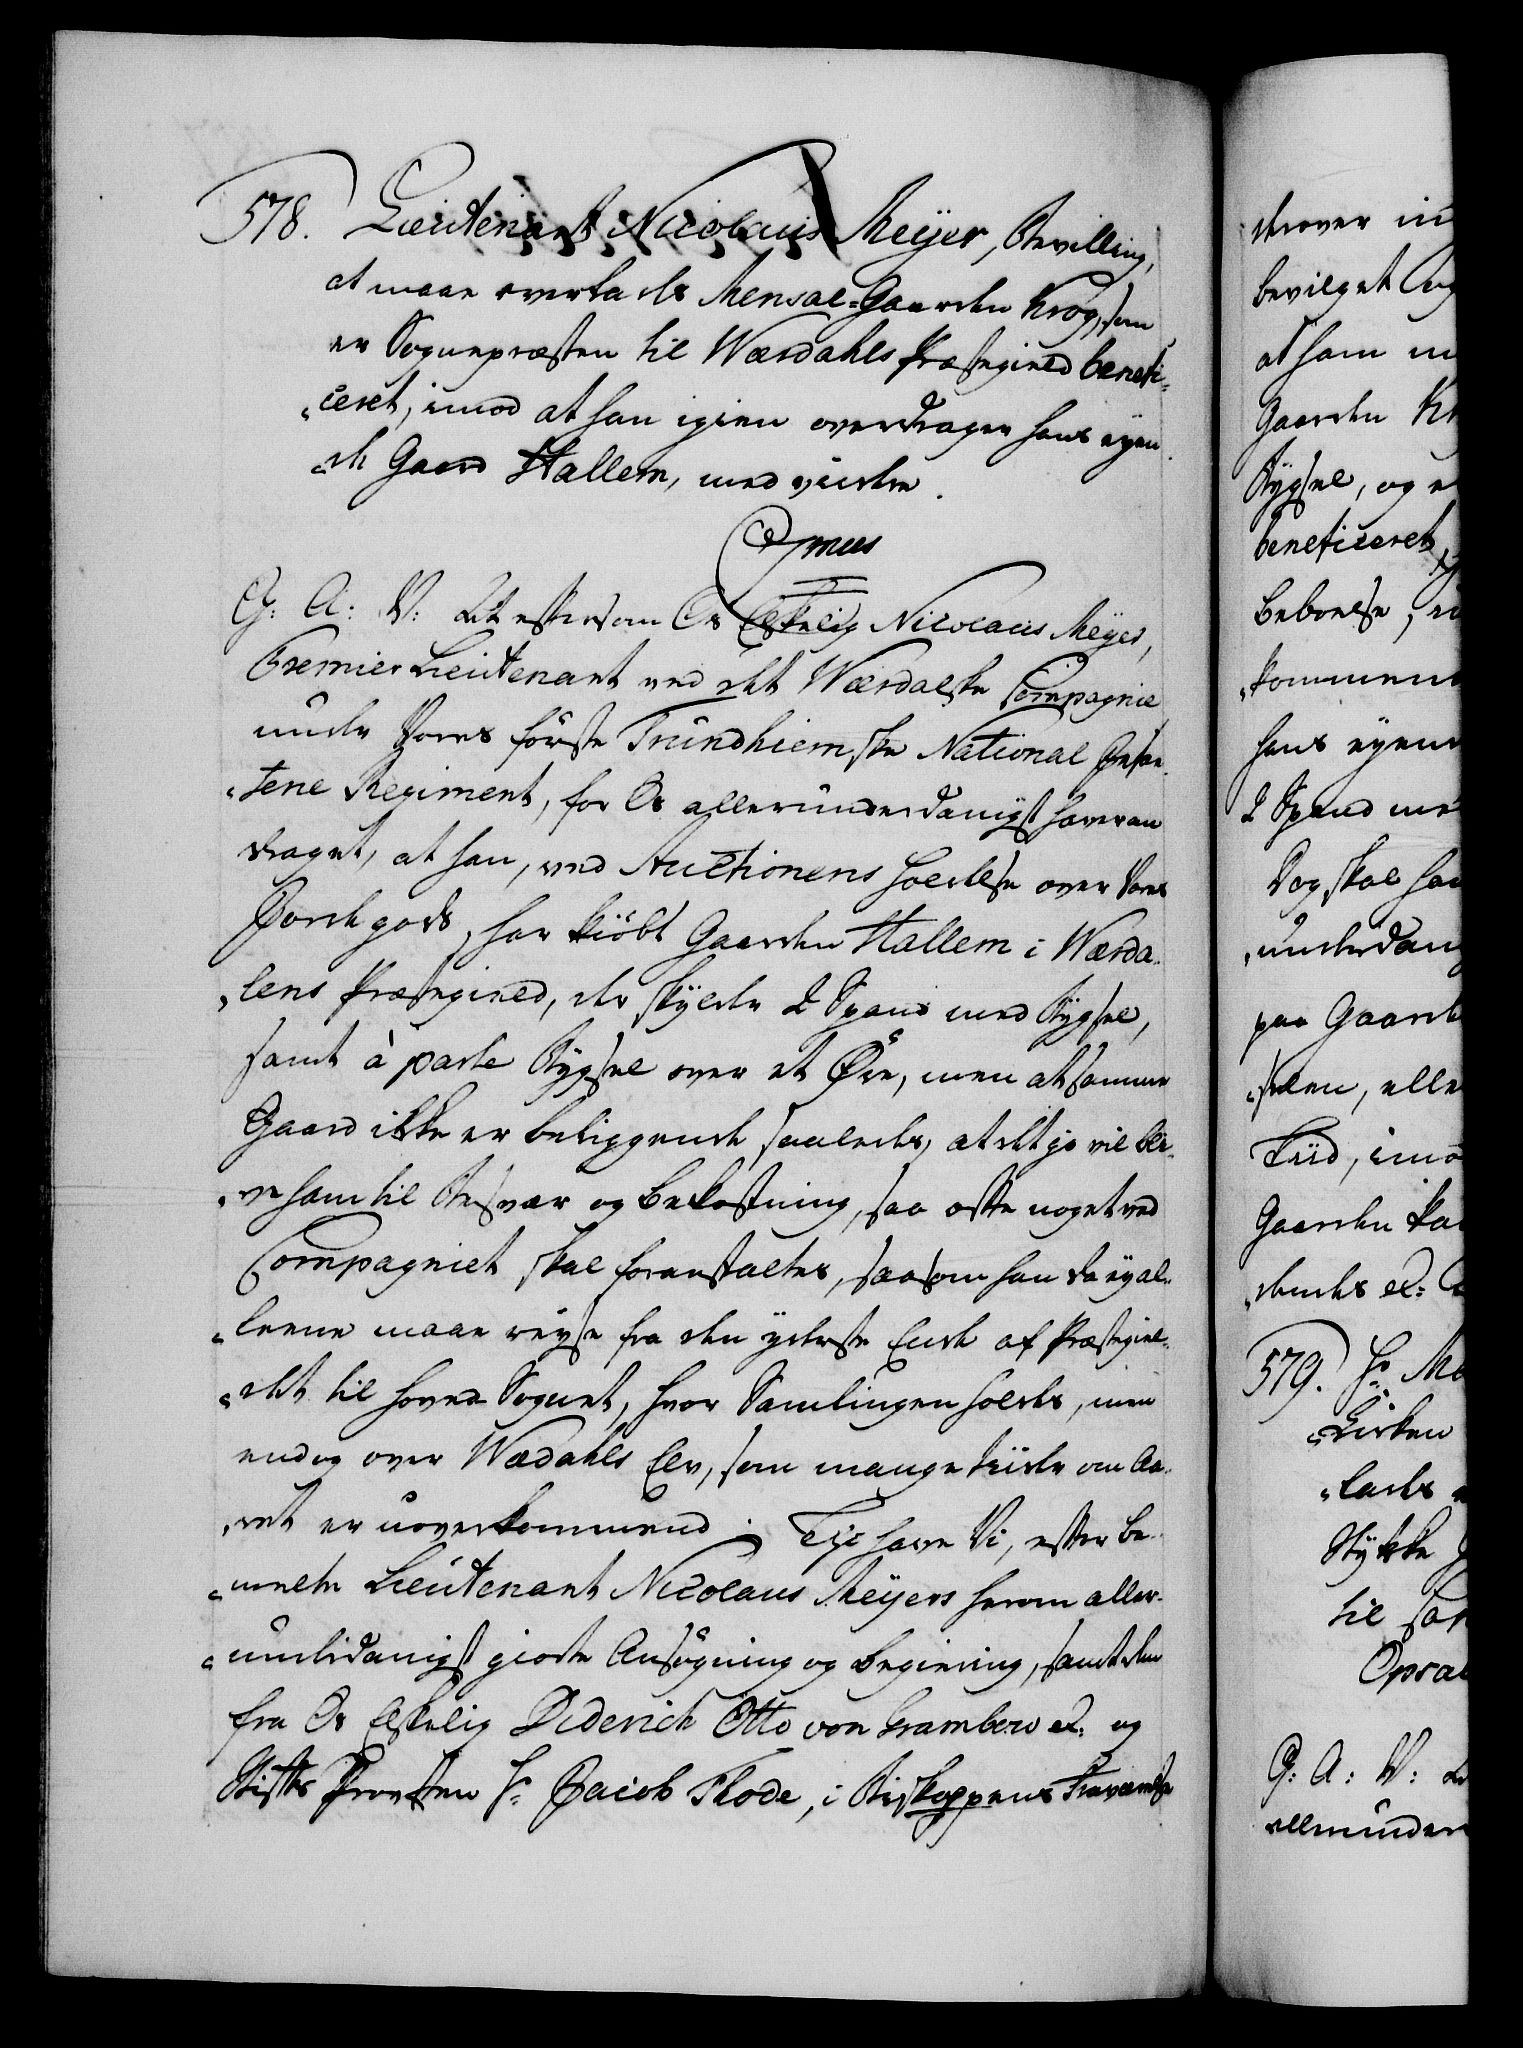 578. Lieutenant Nicolaus Meyer, Bevilling,
at maae overlades Mensal-Gaarden Krog, som
er Sognepræsten til Wærdahls Præstegield benefi-
"ceret, imod at han igien overdrager hans eyen-
"de Gaard Hallem, med videre.
G: A: V: At eftersom Os Elskelig Nicolaus Meyer,
Premier Lieutenant ved det Wærdalske Compagnie
under Vores förste Trundhiemske National Infan-
"terie Regiment, for Os allerunderdanigst haver an-
draget, at han, ved Auctionens holdelse over Vores
Jordegods, har kiöbt Gaarden Hallem i Wærda-
"lens Præstegield, der skylder 2 Spand med Bygsel,
samt à parte Bygsel over et Öre, men at samme
Gaard ikke er beliggende saaledes, at det jo vil bli-
"ve ham til Besvær og bekostning, saa ofte noget ved
Compagniet skal foranstaltes, saasom han da ey al-
"leene maae reyse fra den yderste Ende af Præstegiel-
"det til hoved Sognet, hvor Samlingen holdes, men
endog over Wædahls Elv, som mange tiider om Aa-
"ret er uoverkommend; Thi have Vi, efter be-
"meldte Lieutenant Nicolaus Meyers herom aller-
"underdanigst giorte Ansögning og begiering, samt den
fra Os Elskelig Diderich Otto von Grambow etc: og
Stifts Provsten Hr. Jacob Thode, i Biskoppens Fraværelse
derover in
bevilget Aug
at ham m
Gaarden Kr
Bygsel, og e
beneficeret,
beboelse,
"komment
hans eyen
2 Spand me
Dog skal ha
"underdan
paa Gaard
"sten, elle
Tiid, imo
Gaarden ka
579. Hr. Me
"Kirken
"lades
Stykke
til
Opsal
G: A: V:
allerunder